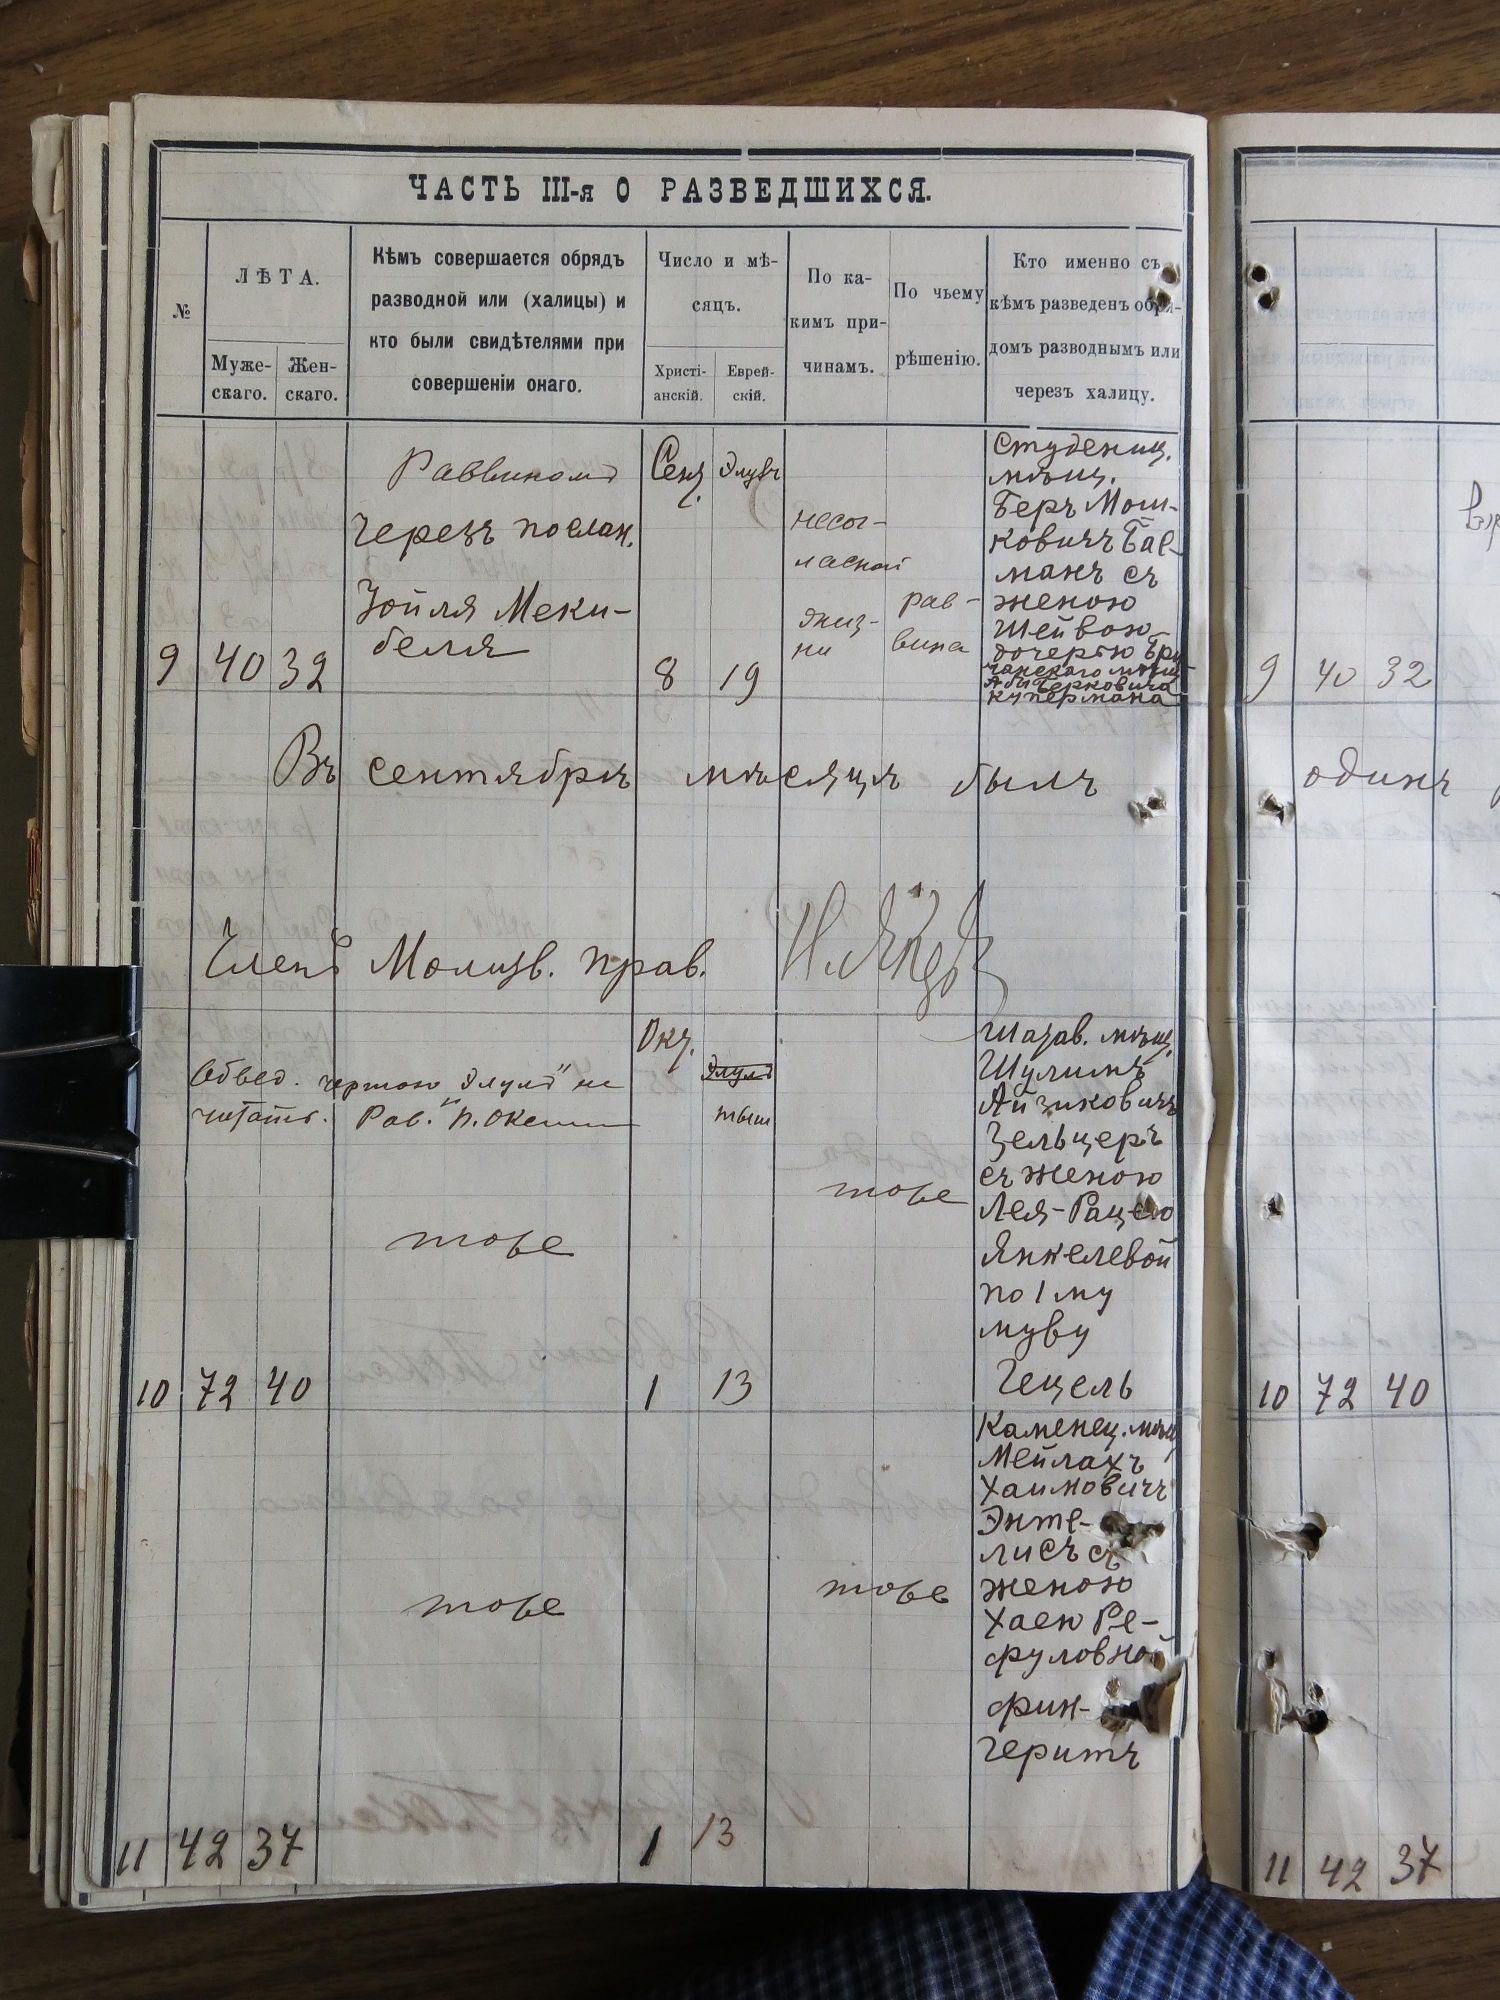 ЧАСТЬ III-я О РАЗВЕДШИХСЯ.
№
ЛѢТА.
Муже-
скаго.
Жен-
скаго.
Кѣмъ совершается обрядъ
разводной или (халицы) и
кто были свидѣтелями при
совершеніи онаго.
Число и мѣ-
сяцъ.
Христі-
анскій.
Еврей-
скій.
По ка-
кимъ при-
чинамъ.
По чьему
рѣшенію.
Кто именно съ
кѣмъ разведенъ обря-
домъ разводнымъ или
черезъ халицу.
9
40
32
Раввиномъ
Черезъ послан.
Зойля Меки-
беля
Сен.
8
19
несог-
ласной
жиз-
ни
рав-
вина
Студениц.
мѣщ.
Беръ Мош-
ковичъ
манъ съ
женою
Шейвою
дочерью
Берковича
Купермана
Въ сентябрѣ мѣсяцѣ былъ
Членъ Молитв. прав.
Обвед. чертою "Элулъ" не
читать. Рав.
10
72
40
тоже
Окт.
Элулъ
тыш
1
13
тоже
Шарав. мѣщ.
Шулимъ
Айзиковичъ
Зельцеръ
съ женою
Лея-Рацею
Янкелевой
по 1му
мужу
Гецель
11
42
37
тоже
1
13
тоже
Каменец. мѣщ
Мейлахъ
Хаимовичъ
Энте-
лисъ съ
женою
Хаею Ре-
фуловной
фин-
геритъ
9
40 32
одинъ
10
72 40
11
42 37